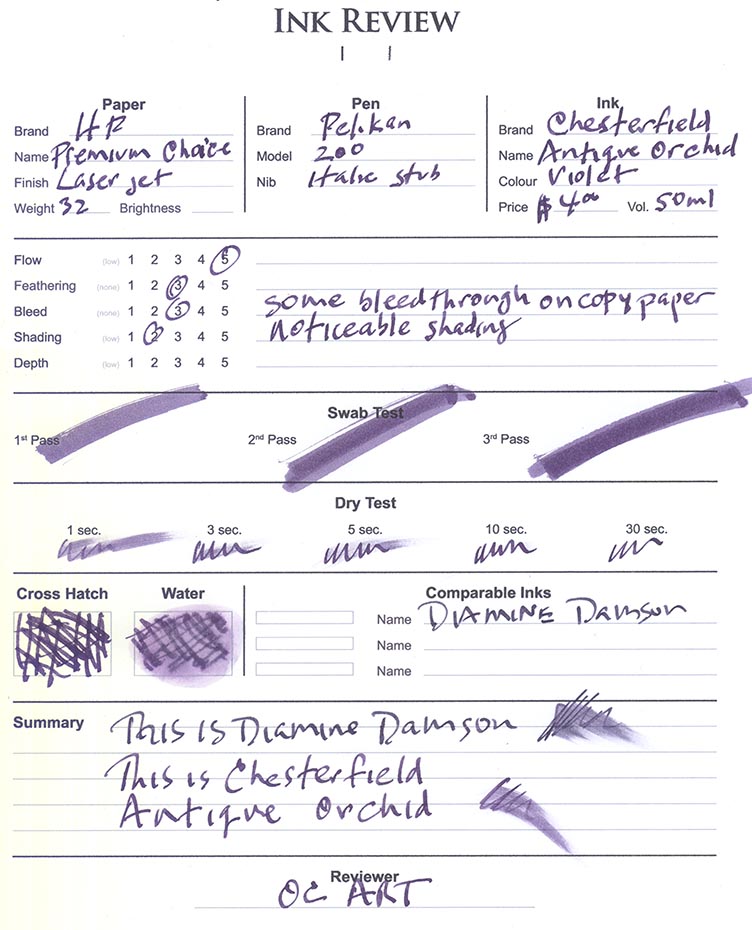 INK REVIEW
Paper Pen Ink
Brand HP Brand Pelikan Brand Chesterfield
Name Premium Choice Model 200 Name Antique Orchid
Finish Laser jet Nib Italic stub Colour Violet
Weight 32 Brightness Price $4.00 Vol. 50ml
Flow (low) 1 2 3 4 5
Feathering (none) 1 2 3 4 5
Bleed (none) 1 2 3 4 5 some bleedthrough on copy paper
Shading (low) 1 2 3 4 5 noticeable shading
Depth (low) 1 2 3 4 5
Swab Test
1st Pass 2nd Pass 3rd Pass
Dry Test
1 sec. 3 sec. 5 sec. 10 sec. 30 sec.
Cross Hatch Water Comparable Inks
Name DIAMINE Damson
Name
Name
Summary This is Diamine Damson
This is Chesterfield
Antique Orchid
Reviewer
OC ART